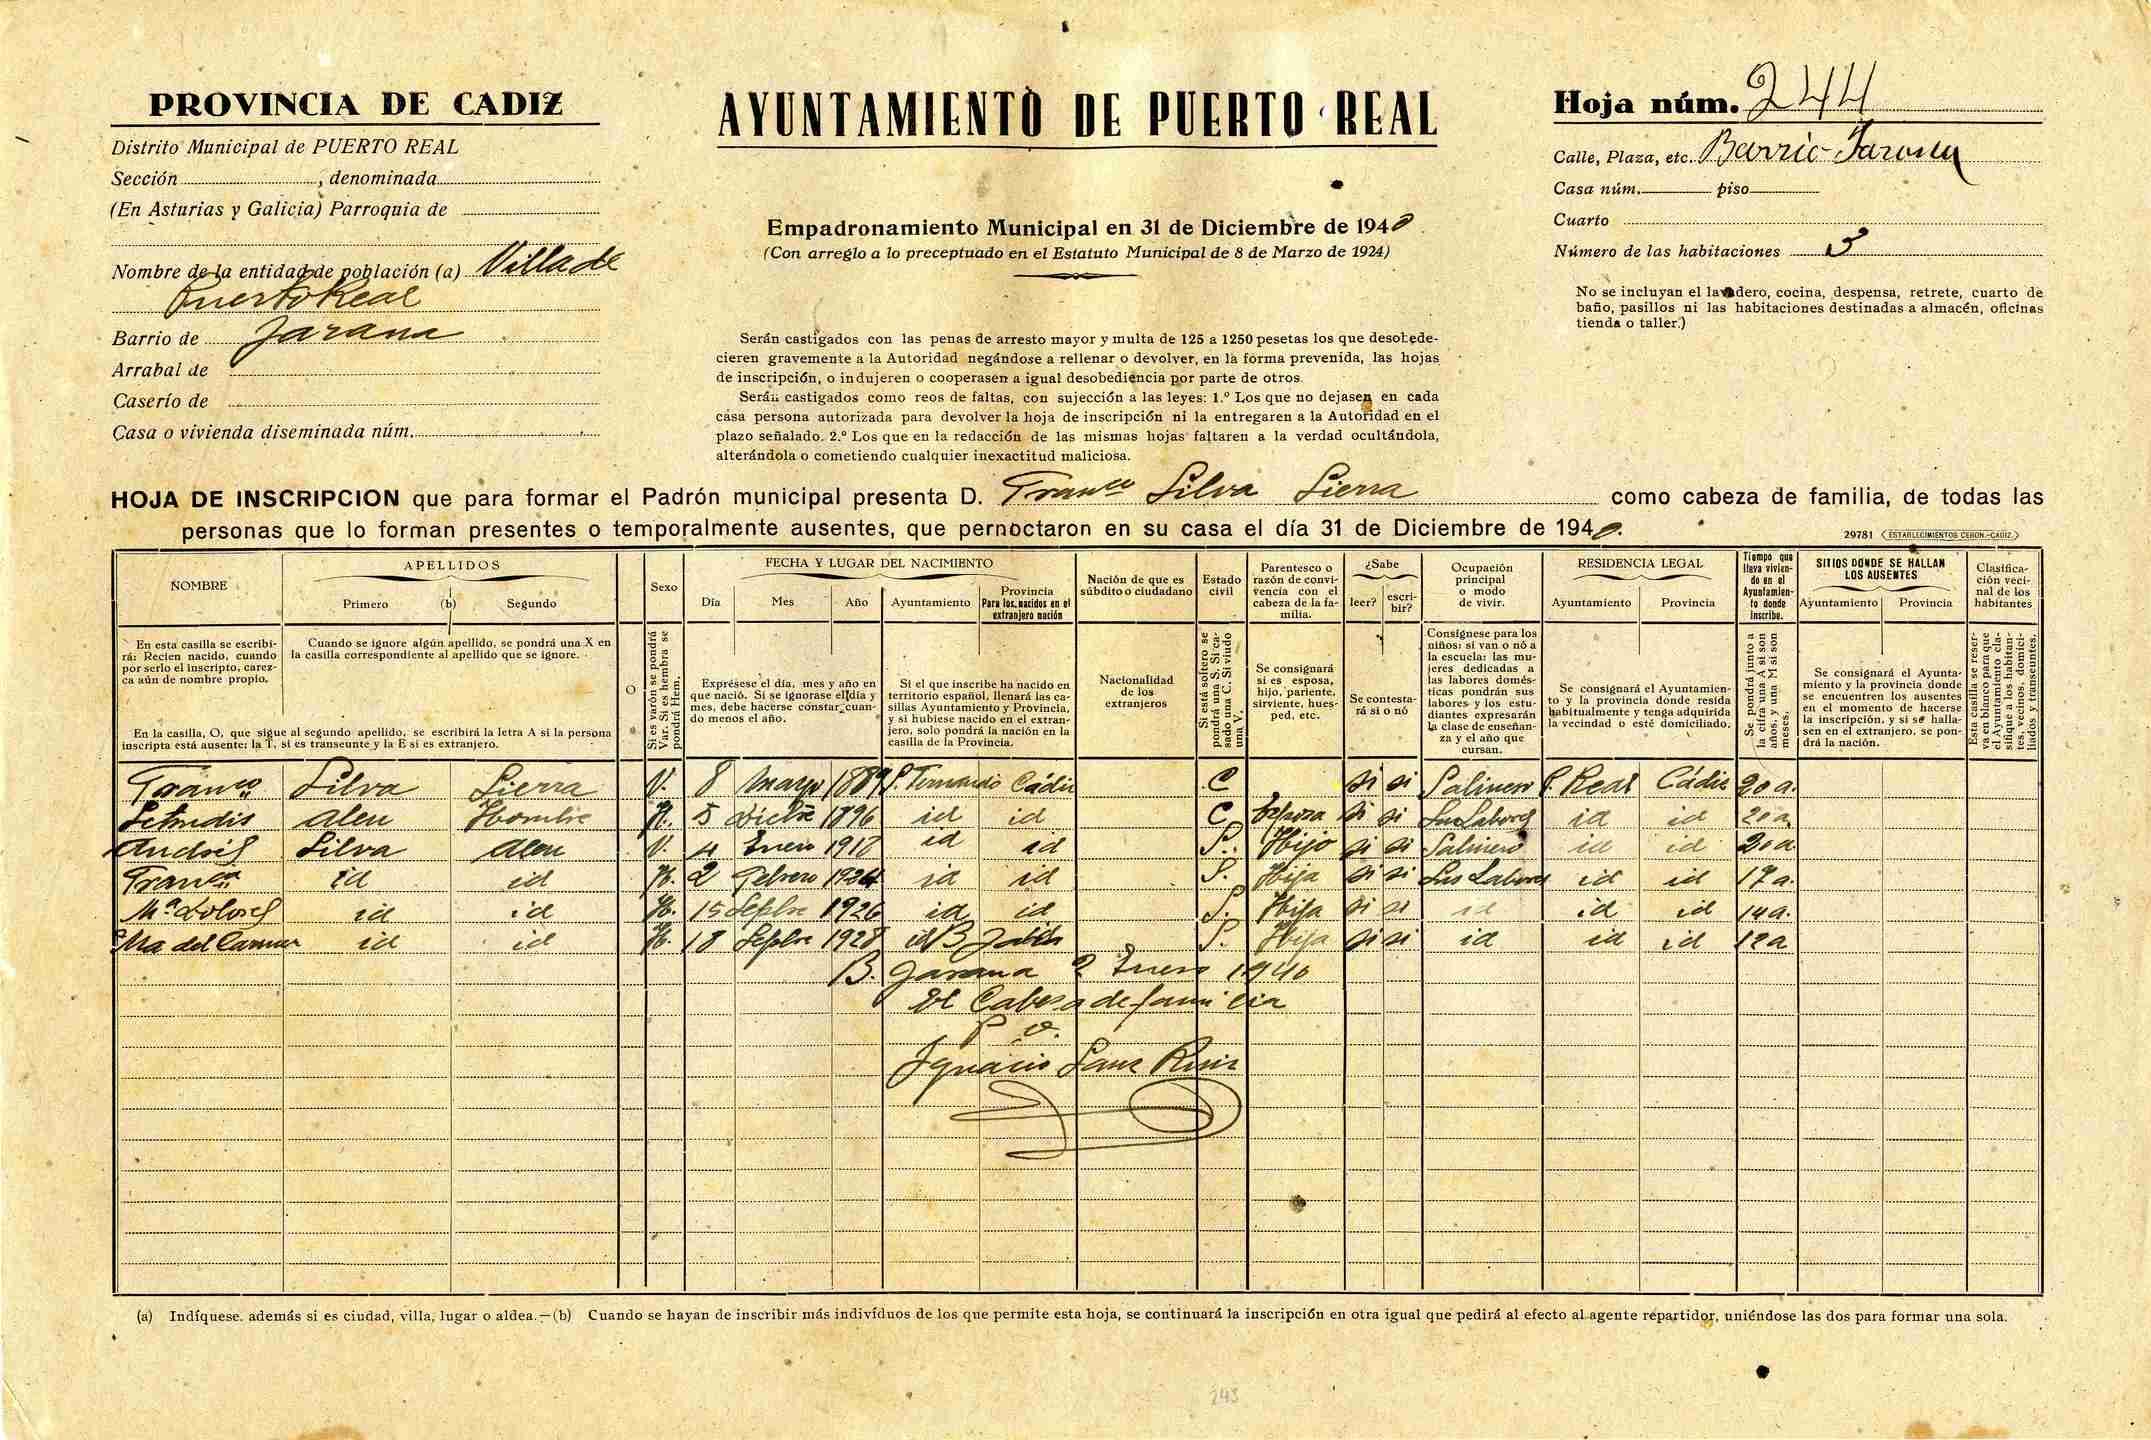 PROVINCIA DE CADIZ
Distrito Municipal de PUERTO REAL
Sección , denominada
(En Asturias y Galicia) Parroquia de
Nombre de la entidad de población (a) Villa de
Puerto Real
Barrio de Jarana
Arrabal de
Caserío de
Casa o vivienda diseminada núm.
AYUNTAMIENTO DE PUERTO REAL
Empadronamiento Municipal en 31 de Diciembre de 1940
(Con arreglo a lo preceptuado en el Estatuto Municipal de 8 de Marzo de 1924)
Serán castigados con las penas de arresto mayor y multa de 125 a 1250 pesetas los que desobede-
cieren gravemente a la Autoridad negándose a rellenar o devolver, en la forma prevenida, las hojas
de inscripción, o indujeren o cooperasen a igual desobediencia por parte de otros.
Serán castigados como reos de faltas, con sujección a las leyes: 1.º Los que no dejasen en cada
casa persona autorizada para devolver la hoja de inscripción ni la entregaren a la Autoridad en el
plazo señalado. 2.º Los que en la redacción de las mismas hojas faltaren a la verdad ocultándola,
alterándola o cometiendo cualquier inexactitud maliciosa.
Hoja núm. 244
Calle, Plaza, etc. Barrio Jarana
Casa núm. piso
Cuarto
Número de las habitaciones 3
No se incluyan el lavadero, cocina, despensa, retrete, cuarto de
baño, pasillos ni las habitaciones destinadas a almacén, oficinas
tienda o taller.)
HOJA DE INSCRIPCION que para formar el Padrón municipal presenta D. Franco Silva Sierra como cabeza de familia, de todas las
personas que lo forman presentes o temporalmente ausentes, que pernoctaron en su casa el día 31 de Diciembre de 1940.
29781 ESTABLECIMIENTOS CERON.-CADIZ.
NOMBRE
APELLIDOS
Primero (b) Segundo
O
Sexo
FECHA Y LUGAR DEL NACIMIENTO
Día Mes Año Ayuntamiento
Provincia
Para los nacidos en el
extranjero nación
Nación de que es
súbdito o ciudadano
Estado
civil
Parentesco o
razón de convi-
vencia con el
cabeza de la fa-
milia.
¿Sabe
leer? escri-
bir?
Ocupación
principal
o modo
de vivir.
RESIDENCIA LEGAL
Ayuntamiento Provincia
Tiempo que
lleva vivien-
do en el
Ayuntamien-
to donde
inscribe.
SITIOS DONDE SE HALLAN
LOS AUSENTES
Ayuntamiento Provincia
Clasifica-
ción veci-
nal de los
habitantes
En esta casilla se escribi-
rá: Recien nacido, cuando
por serlo el inscripto, carez-
ca aún de nombre propio.
Cuando se ignore algún apellido, se pondrá una X en
la casilla correspondiente al apellido que se ignore.
En la casilla, O, que sigue al segundo apellido, se escribirá la letra A si la persona
inscripta está ausente: la T, si es transeunte y la E si es extranjero.
Si es varón se pondrá
Var. Si es hembra se
pondrá Hem.
Expresese el día, mes y año en
que nació. Si se ignorase el día y
mes, debe hacerse constar cuan-
do menos el año.
Si el que inscribe ha nacido en
territorio español, llenará las ca-
sillas Ayuntamiento y Provincia,
y si hubiese nacido en el extran-
jero, solo pondrá la nación en la
casilla de la Provincia.
Nacionalidad
de los
extranjeros
Si está soltero se
pondrá una S. Si ca-
sado una C. Si viudo
una V.
Se consignará
si es esposa,
hijo, pariente,
sirviente, hues-
ped, etc.
Se contesta-
rá si o nó
Consígnese para los
niños: si van o nó a
la escuela: las mu-
jeres dedicadas a
las labores domés-
ticas pondrán sus
labores y los estu-
diantes expresarán
la clase de enseñan-
za y el año que
cursan.
Se consignará el Ayuntamien-
to y la provincia donde resida
habitualmente y tenga adquirida
la vecindad o esté domiciliado.
Se pondrá junto a
la cifra una A si son
años, y una M si son
meses.
Se consignará el Ayunta-
miento y la provincia donde
se encuentren los ausentes
en el momento de hacerse
la inscripción, y si se halla-
sen en el extranjero, se pon-
drá la nación.
Esta casilla se reser-
va en blanco para que
el Ayuntamiento cla-
sifique a los habitan-
tes, vecinos, domici-
liados y transeuntes.
Franco Silva Sierra V. 8 Mayo 1889 S. Fernando Cádiz C si si Salinero P. Real Cádiz 20 a.
Aleu H. 5 Dicbre 1896 id id C Esposa si si Sus Labores id id 20 a.
Andrés Silva Aleu V. 4 Enero 1918 id id S. Hijo si si Salinero id id 20 a.
Franca id id H. 2 Febrero 1924 id id S. Hija si si Sus Labores id id 17 a.
Mª Dolores id id H. 15 Sepbre 1926 id id S. Hija si si id id id 14 a.
Ma del Carmen id id H. 18 Sepbre 1928 id S. Hija si si id id id 12 a
B. Jarana 2 Enero 1940
El Cabeza de familia
P. O.
Ignacio Sanz Ruiz
(a) Indíquese. además si es ciudad, villa, lugar o aldea.—(b) Cuando se hayan de inscribir más indivíduos de los que permite esta hoja, se continuará la inscripción en otra igual que pedirá al efecto al agente repartidor, uniéndose las dos para formar una sola.
243